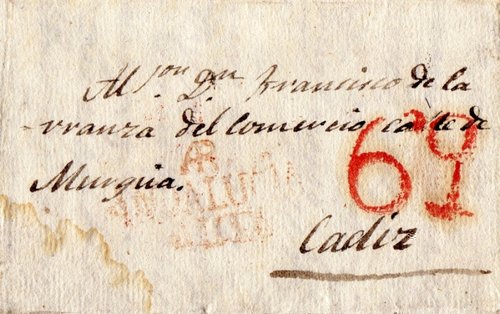 Al Sor. Dn. Francisco de la
rranza del Comercio calle de
Murguia.
69
Cadiz